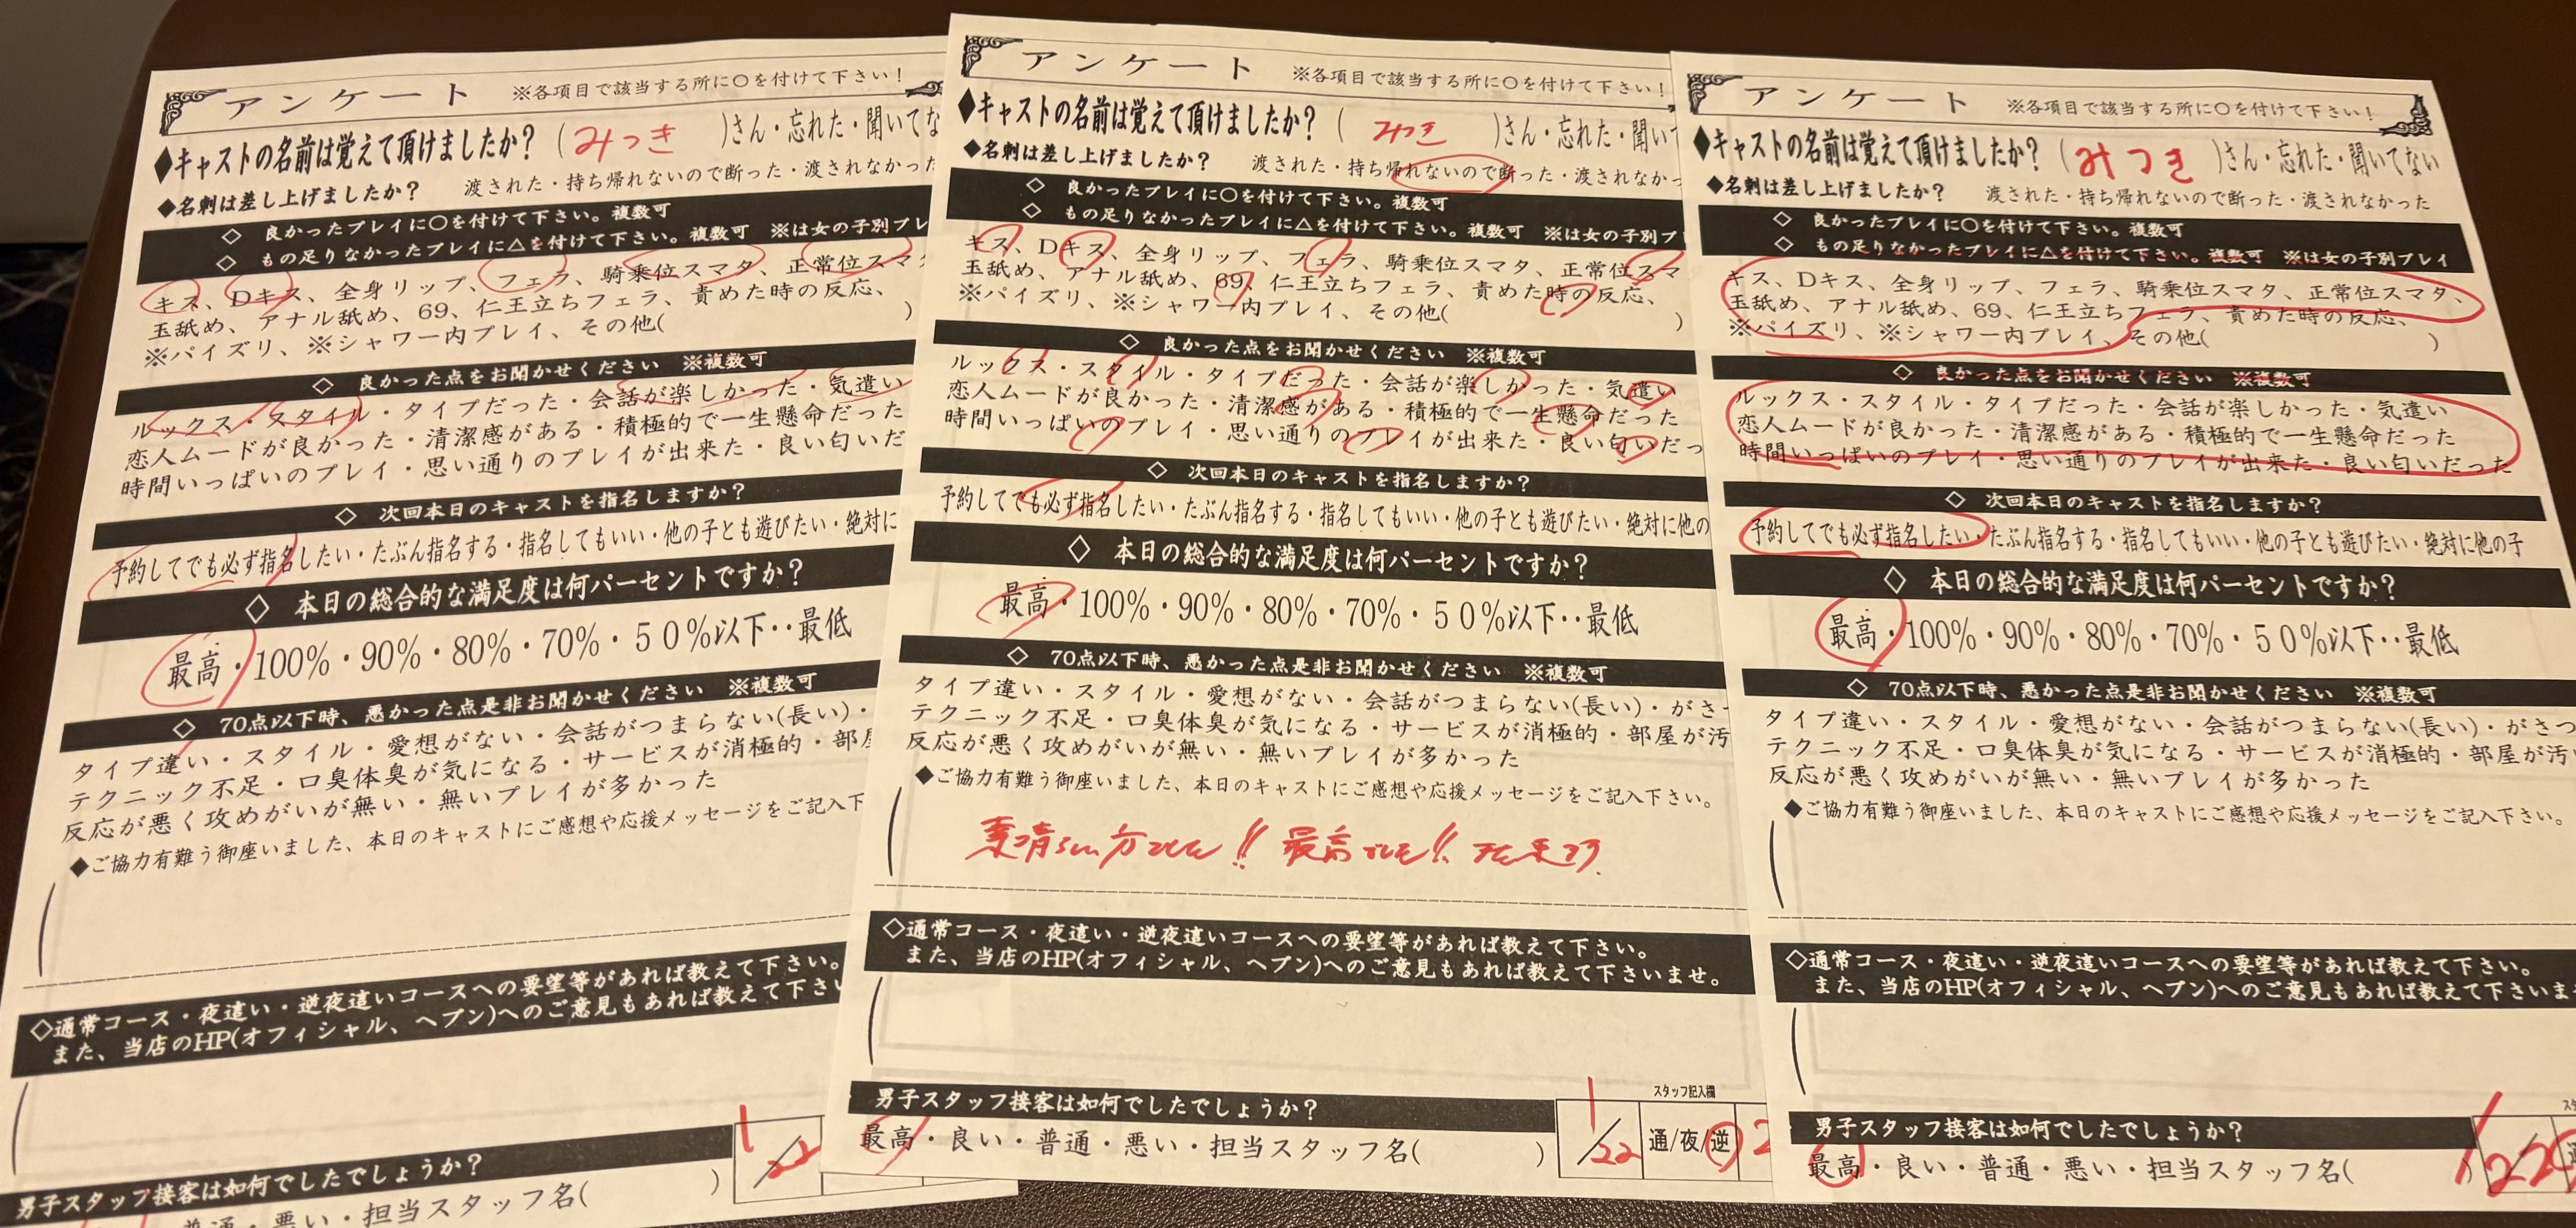 アンケート ※各項目で該当する所に○を付けて下さい！
◆キャストの名前は覚えて頂けましたか？ (みつき)さん・忘れた・聞いてな
◆名刺は差し上げましたか？ 渡された・持ち帰れないので断った・渡されなかった
◇ 良かったプレイに○を付けて下さい。複数可
◇ もの足りなかったプレイに△を付けて下さい。複数可 ※は女の子別プレ
キス、Dキス、全身リップ、フェラ、騎乗位スマタ、正常位スマタ
玉舐め、アナル舐め、69、仁王立ちフェラ、責めた時の反応、
※パイズリ、※シャワー内プレイ、その他( )
◇ 良かった点をお聞かせください ※複数可
ルックス・スタイル・タイプだった・会話が楽しかった・気遣い
恋人ムードが良かった・清潔感がある・積極的で一生懸命だった
時間いっぱいのプレイ・思い通りのプレイが出来た・良い匂いだ
◇ 次回本日のキャストを指名しますか？
予約してでも必ず指名したい・たぶん指名する・指名してもいい・他の子とも遊びたい・絶対に
◇ 本日の総合的な満足度は何パーセントですか？
最高・100%・90%・80%・70%・５０%以下‥最低
◇ 70点以下時、悪かった点是非お聞かせください ※複数可
タイプ違い・スタイル・愛想がない・会話がつまらない(長い)・
テクニック不足・口臭体臭が気になる・サービスが消極的・部屋
反応が悪く攻めがいが無い・無いプレイが多かった
◆ご協力有難う御座いました、本日のキャストにご感想や応援メッセージをご記入下
◇通常コース・夜這い・逆夜這いコースへの要望等があれば教えて下さい。
また、当店のHP(オフィシャル、ヘブン)へのご意見もあれば教えて下さい
男子スタッフ接客は如何でしたでしょうか？
普通・悪い・担当スタッフ名( )
1/22
アンケート ※各項目で該当する所に○を付けて下さい！
◆キャストの名前は覚えて頂けましたか？ (みつき)さん・忘れた・聞いて
◆名刺は差し上げましたか？ 渡された・持ち帰れないので断った・渡されなかっ
◇ 良かったプレイに○を付けて下さい。複数可
◇ もの足りなかったプレイに△を付けて下さい。複数可 ※は女の子別プ
キス、Dキス、全身リップ、フェラ、騎乗位スマタ、正常位スマ
玉舐め、アナル舐め、69、仁王立ちフェラ、責めた時の反応、
※パイズリ、※シャワー内プレイ、その他( )
◇ 良かった点をお聞かせください ※複数可
ルックス・スタイル・タイプだった・会話が楽しかった・気遣い
恋人ムードが良かった・清潔感がある・積極的で一生懸命だった
時間いっぱいのプレイ・思い通りのプレイが出来た・良い匂いだっ
◇ 次回本日のキャストを指名しますか？
予約してでも必ず指名したい・たぶん指名する・指名してもいい・他の子とも遊びたい・絶対に他の
◇ 本日の総合的な満足度は何パーセントですか？
最高・100%・90%・80%・70%・５０%以下‥最低
◇ 70点以下時、悪かった点是非お聞かせください ※複数可
タイプ違い・スタイル・愛想がない・会話がつまらない(長い)・がさ
テクニック不足・口臭体臭が気になる・サービスが消極的・部屋が汚
反応が悪く攻めがいが無い・無いプレイが多かった
◆ご協力有難う御座いました、本日のキャストにご感想や応援メッセージをご記入下さい。
素晴らしい方でした!! 最高でした!! また来ます.
◇通常コース・夜這い・逆夜這いコースへの要望等があれば教えて下さい。
また、当店のHP(オフィシャル、ヘブン)へのご意見もあれば教えて下さいませ。
男子スタッフ接客は如何でしたでしょうか？
スタッフ記入欄
最高・良い・普通・悪い・担当スタッフ名( )
1/22 通/夜/逆 2
アンケート ※各項目で該当する所に○を付けて下さい！
◆キャストの名前は覚えて頂けましたか？ (みつき)さん・忘れた・聞いてない
◆名刺は差し上げましたか？ 渡された・持ち帰れないので断った・渡されなかった
◇ 良かったプレイに○を付けて下さい。複数可
◇ もの足りなかったプレイに△を付けて下さい。複数可 ※は女の子別プレイ
キス、Dキス、全身リップ、フェラ、騎乗位スマタ、正常位スマタ、
玉舐め、アナル舐め、69、仁王立ちフェラ、責めた時の反応、
※パイズリ、※シャワー内プレイ、その他( )
◇ 良かった点をお聞かせください ※複数可
ルックス・スタイル・タイプだった・会話が楽しかった・気遣い
恋人ムードが良かった・清潔感がある・積極的で一生懸命だった
時間いっぱいのプレイ・思い通りのプレイが出来た・良い匂いだった
◇ 次回本日のキャストを指名しますか？
予約してでも必ず指名したい・たぶん指名する・指名してもいい・他の子とも遊びたい・絶対に他の子
◇ 本日の総合的な満足度は何パーセントですか？
最高・100%・90%・80%・70%・５０%以下‥最低
◇ 70点以下時、悪かった点是非お聞かせください ※複数可
タイプ違い・スタイル・愛想がない・会話がつまらない(長い)・がさつ
テクニック不足・口臭体臭が気になる・サービスが消極的・部屋が汚
反応が悪く攻めがいが無い・無いプレイが多かった
◆ご協力有難う御座いました、本日のキャストにご感想や応援メッセージをご記入下さい。
◇通常コース・夜這い・逆夜這いコースへの要望等があれば教えて下さい。
また、当店のHP(オフィシャル、ヘブン)へのご意見もあれば教えて下さいま
男子スタッフ接客は如何でしたでしょうか？
最高・良い・普通・悪い・担当スタッフ名( )
1/22